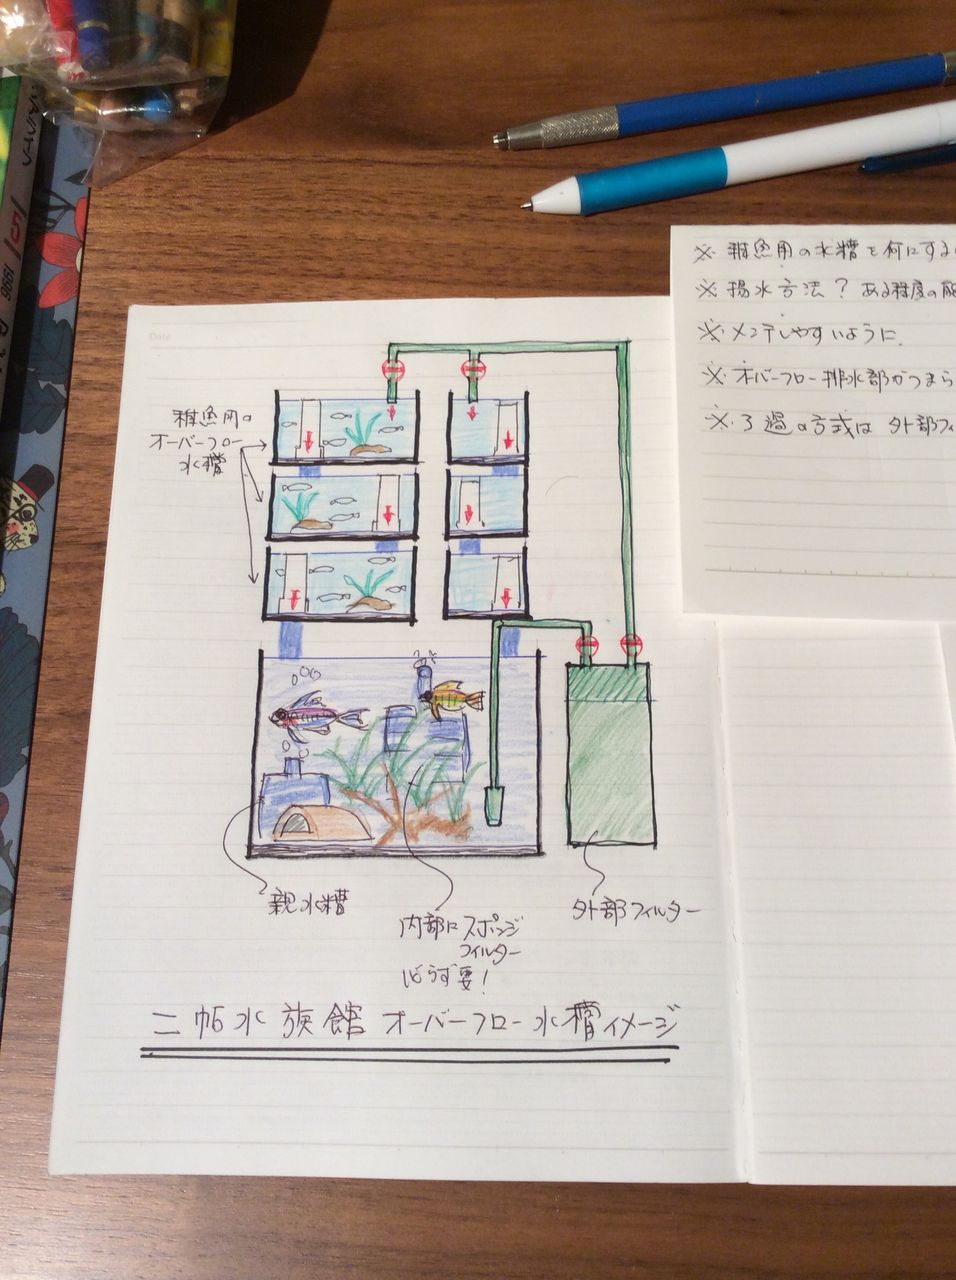 Date
※ 稚魚用の水槽を何にする
※ 揚水方法? ある程度の
※ メンテしやすいように.
※ オーバーフロー排水部がつまら
※ ろ過の方式は 外部フィ
稚魚用の
オーバーフロー
水槽
親水槽
内部にスポンジ
フィルター
必らず要!
外部フィルター
二帖水族館 オーバーフロー水槽イメージ